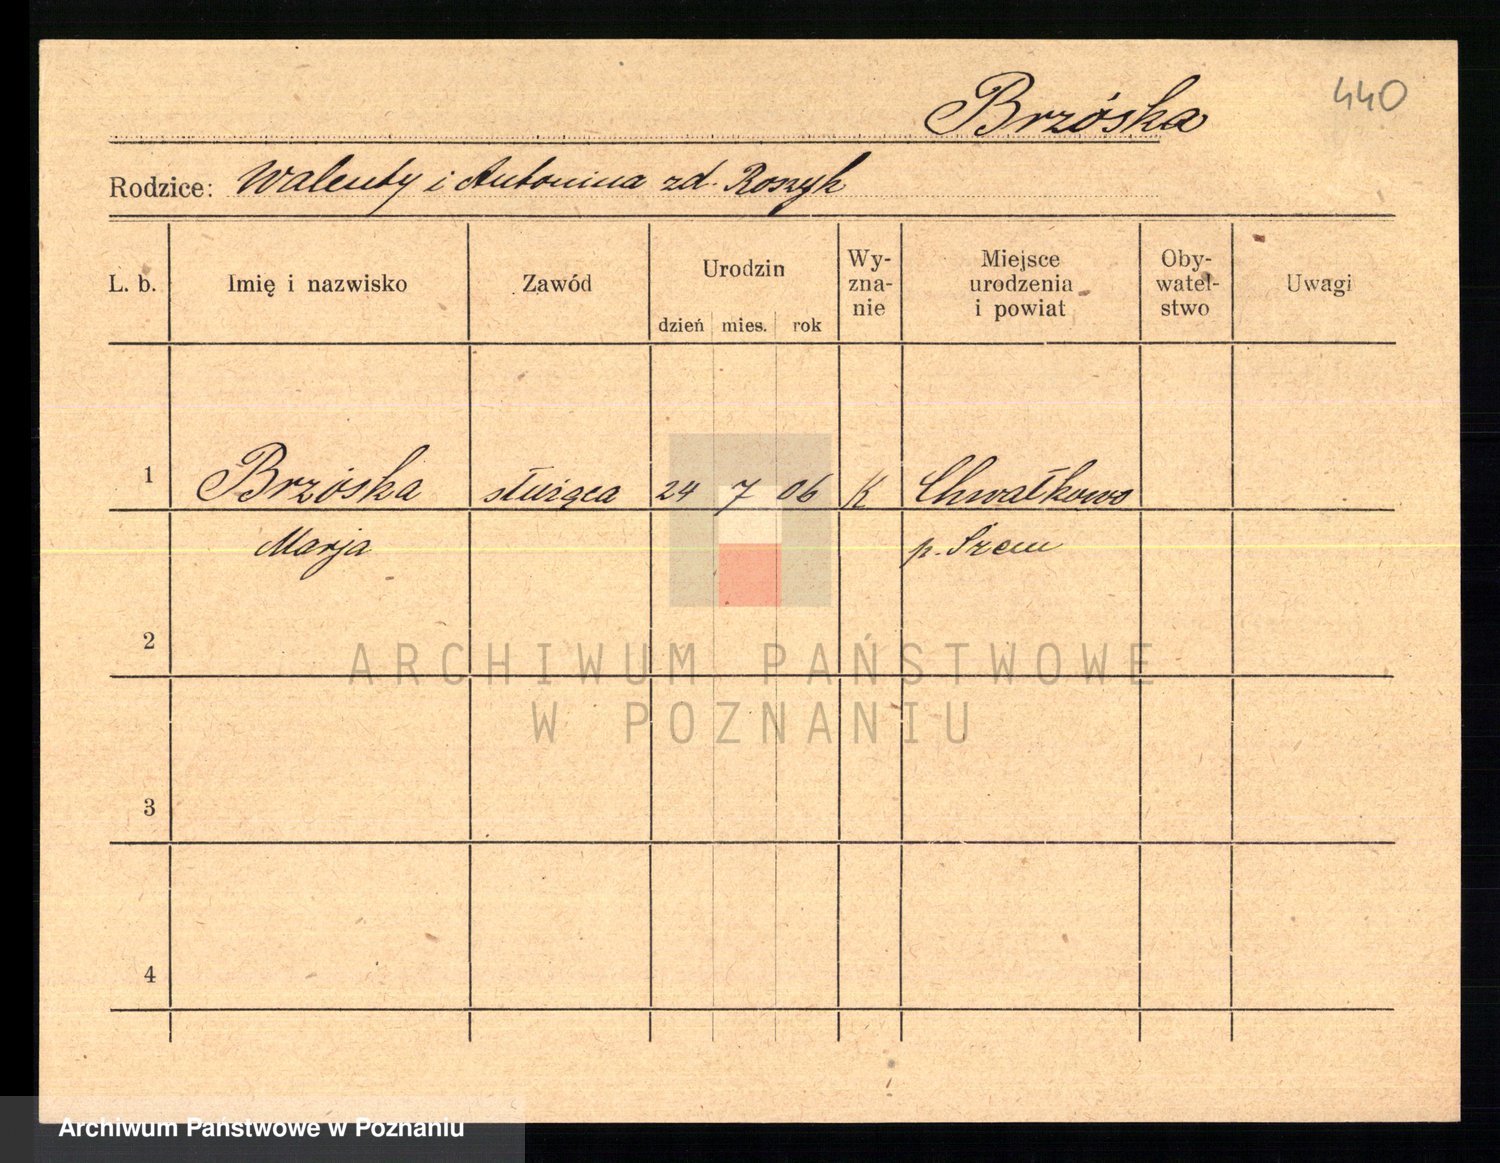 440
Brzóska
Rodzice: Walenty i Antonina zd. Roszyk
L. b. Imię i nazwisko Zawód Urodzin dzień mies. rok Wy-zna-nie Miejsce urodzenia i powiat Oby-watel-stwo Uwagi
1 Brzóska służąca 24 7 06 K Chwałkowo
Marja p. Śrem
2
ARCHIWUM PAŃSTWOWE
W POZNANIU
3
4
Archiwum Państwowe w Poznaniu